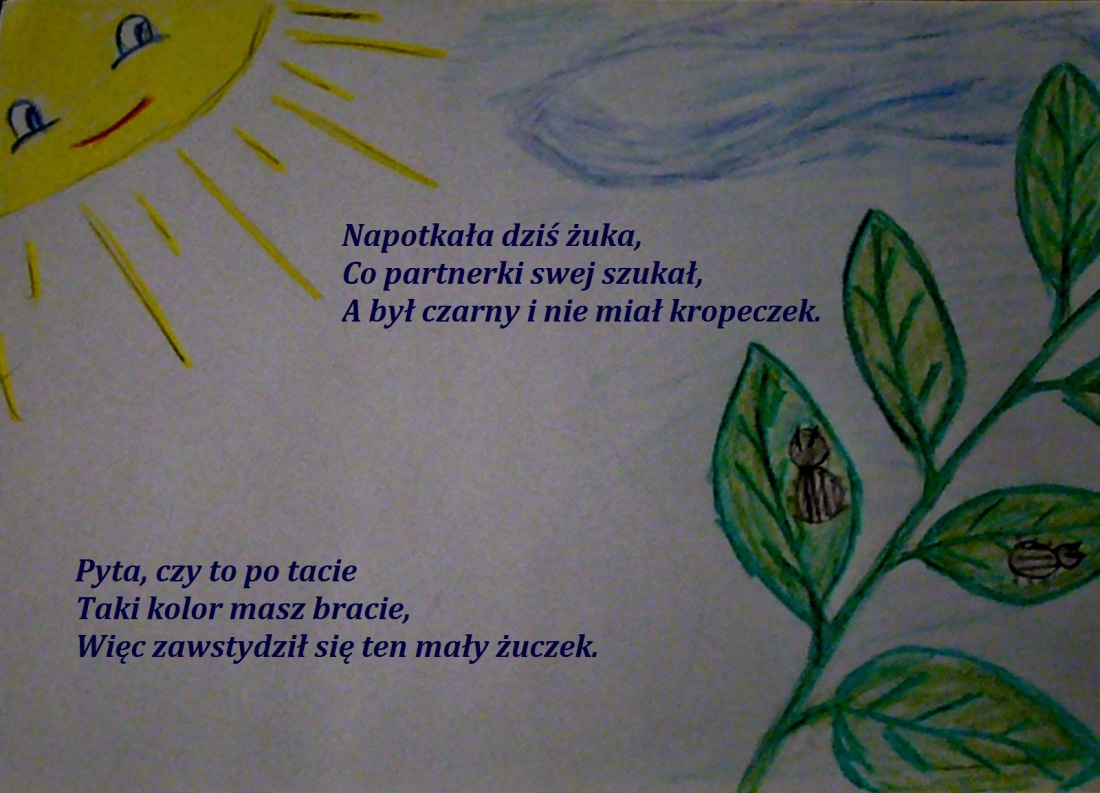 Napotkała dziś żuka,
Co partnerki swej szukał,
A był czarny i nie miał kropeczek.
Pyta, czy to po tacie
Taki kolor masz bracie,
Więc zawstydził się ten mały żuczek.